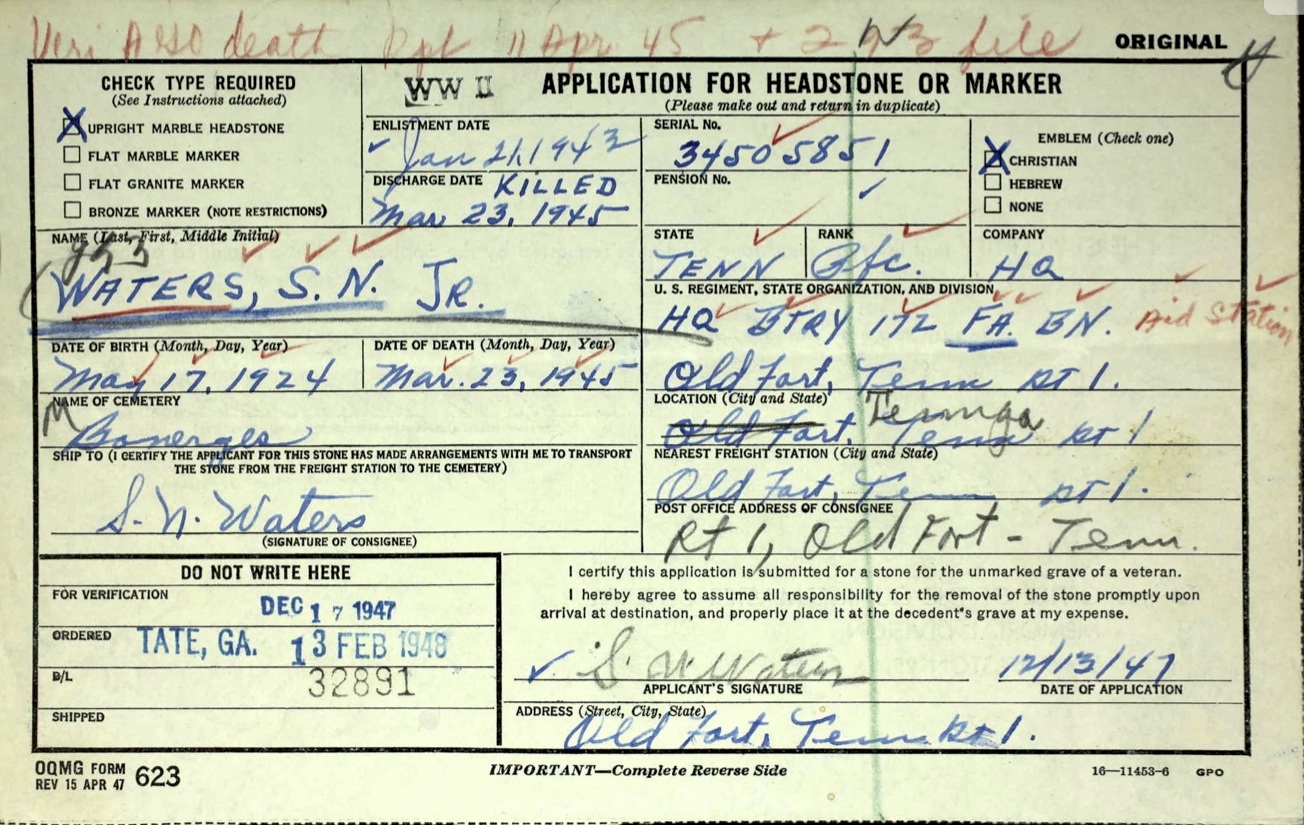 Veri AGO death Rpt 11 Apr 45 + 293 file
ORIGINAL
CHECK TYPE REQUIRED
(See Instructions attached)
X UPRIGHT MARBLE HEADSTONE
FLAT MARBLE MARKER
FLAT GRANITE MARKER
BRONZE MARKER (NOTE RESTRICTIONS)
WW II
APPLICATION FOR HEADSTONE OR MARKER
(Please make out and return in duplicate)
ENLISTMENT DATE
Jan 21, 1943
DISCHARGE DATE KILLED
Mar 23, 1945
SERIAL No.
34505851
PENSION No.
EMBLEM (Check one)
X CHRISTIAN
HEBREW
NONE
NAME (Last, First, Middle Initial)
WATERS, S. N. JR.
STATE
TENN
RANK
Pfc.
COMPANY
HQ
U. S. REGIMENT, STATE ORGANIZATION, AND DIVISION
HQ BTRY 172 FA. BN. Aid Station
DATE OF BIRTH (Month, Day, Year)
May 17, 1924
DATE OF DEATH (Month, Day, Year)
Mar. 23, 1945
Old Fort, Tenn Rt 1.
NAME OF CEMETERY
Bonerges
LOCATION (City and State)
Old Fort, Tenn Rt 1
SHIP TO (I CERTIFY THE APPLICANT FOR THIS STONE HAS MADE ARRANGEMENTS WITH ME TO TRANSPORT
THE STONE FROM THE FREIGHT STATION TO THE CEMETERY)
S. N. Waters
(SIGNATURE OF CONSIGNEE)
NEAREST FREIGHT STATION (City and State)
Old Fort, Tenn Rt 1.
POST OFFICE ADDRESS OF CONSIGNEE
Rt 1, Old Fort - Tenn.
DO NOT WRITE HERE
FOR VERIFICATION
DEC 17 1947
ORDERED
TATE, GA. 13 FEB 1948
B/L
32891
SHIPPED
I certify this application is submitted for a stone for the unmarked grave of a veteran.
I hereby agree to assume all responsibility for the removal of the stone promptly upon
arrival at destination, and properly place it at the decedent's grave at my expense.
S. N. Waters
12/13/47
APPLICANT'S SIGNATURE
DATE OF APPLICATION
ADDRESS (Street, City, State)
Old Fort, Tenn Rt 1.
OQMG FORM
REV 15 APR 47 623
IMPORTANT—Complete Reverse Side
16—11453-6 GPO